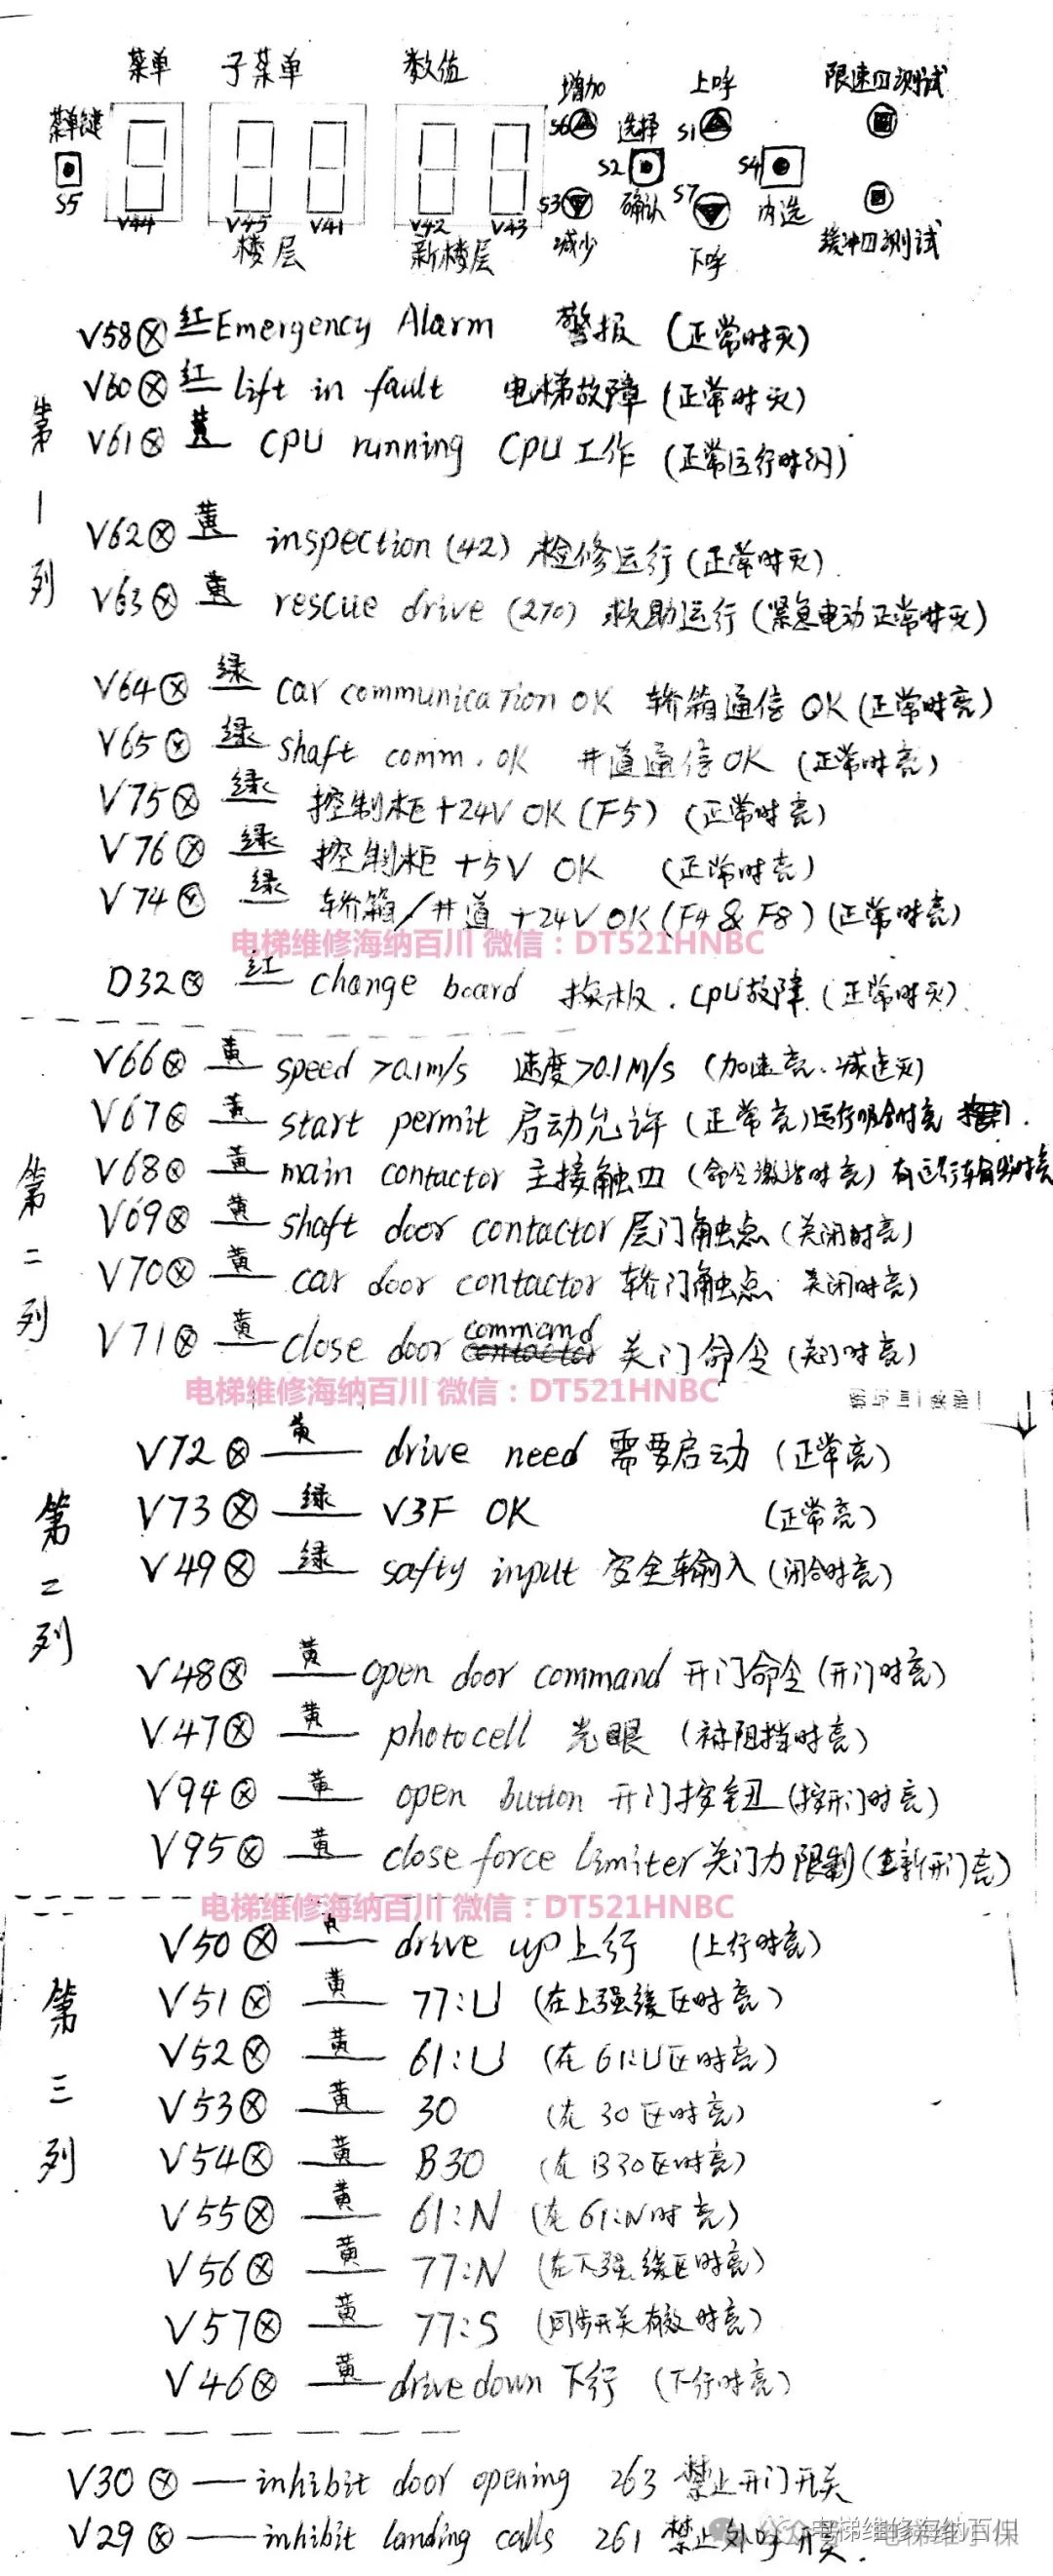 菜单 子菜单 数值
增加 上呼 限速四测试
菜单键 S6 选择 S1
S2 S4
S5 S3 确认 S7 内选
V44 V45 V41 V42 V43
楼层 新楼层 减少 下呼 缓冲四测试
V58 红 Emergency Alarm 警报 (正常时灭)
V60 红 lift in fault 电梯故障 (正常时灭)
V61 黄 CPU running CPU工作 (正常运行时闪)
第一列
V62 黄 inspection (42) 检修运行 (正常时灭).
V63 黄 rescue drive (270) 救助运行 (紧急电动正常时灭)
V64 绿 car communication OK 轿箱通信 OK (正常时亮)
V65 绿 shaft comm. OK 井道通信OK (正常时亮)
V75 绿 控制柜+24V OK (F5) (正常时亮)
V76 绿 控制柜 +5V OK (正常时亮)
V74 绿 轿箱/井道 +24V OK (F4 & F8) (正常时亮)
电梯维修海纳百川 微信：DT521HNBC
D32 红 change board 换板. CPU故障. (正常时灭)
V66 黄 speed >0.1m/s 速度>0.1M/s (加速亮、减速灭)
V67 黄 start permit 启动允许 (正常亮) 运行吸合时亮
V68 黄 main contactor 主接触四 (命令激活时亮)
第二列
V69 黄 shaft door contactor 层门触点 (关闭时亮)
V70 黄 car door contactor 轿门触点 关闭时亮)
V71 黄 close door command 关门命令 (关门时亮)
电梯维修海纳百川 微信：DT521HNBC
V72 黄 drive need 需要启动 (正常亮)
V73 绿 V3F OK (正常亮)
第二列
V49 绿 safty input 安全输入 (闭合时亮)
V48 黄 open door command 开门命令 (开门时亮)
V47 黄 photocell 光眼 (被阻挡时亮)
V94 黄 open button 开门按钮 (按开门时亮)
V95 黄 close force limiter 关门力限制 (重新开门亮)
电梯维修海纳百川 微信：DT521HNBC
V50 drive up 上行 (上行时亮)
V51 黄 77:U (在上强缓区时亮)
第三列
V52 黄 61:U (在61:U区时亮)
V53 黄 30 (在30区时亮)
V54 黄 B30 (在B30区时亮)
V55 黄 61:N (在61:N时亮)
V56 黄 77:N (在下强缓区时亮)
V57 黄 77:S (同步开关有效时亮)
V46 黄 drive down 下行 (下行时亮)
V30 inhibit door opening 263 禁止开门开关
V29 inhibit landing calls 261 禁止外呼开关.
电梯维修海纳百川